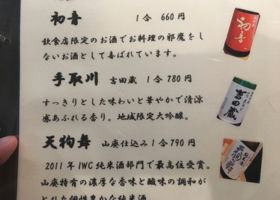 初音 1合 660円
飲食店限定のお酒でお料理の邪魔をし
ないお酒として喜ばれています。
手取川 吉田蔵 1合 780円
すっきりとした味わいと華やかで清涼
感あふれる香り。地域限定大吟醸。
天狗舞 山廃仕込み 1合 790円
2011年IWC純米酒部門で最高位受賞。
山廃特有の濃厚な香味と酸味の調和が
とれた個性豊かな純米酒
初音
吉田蔵
天狗舞